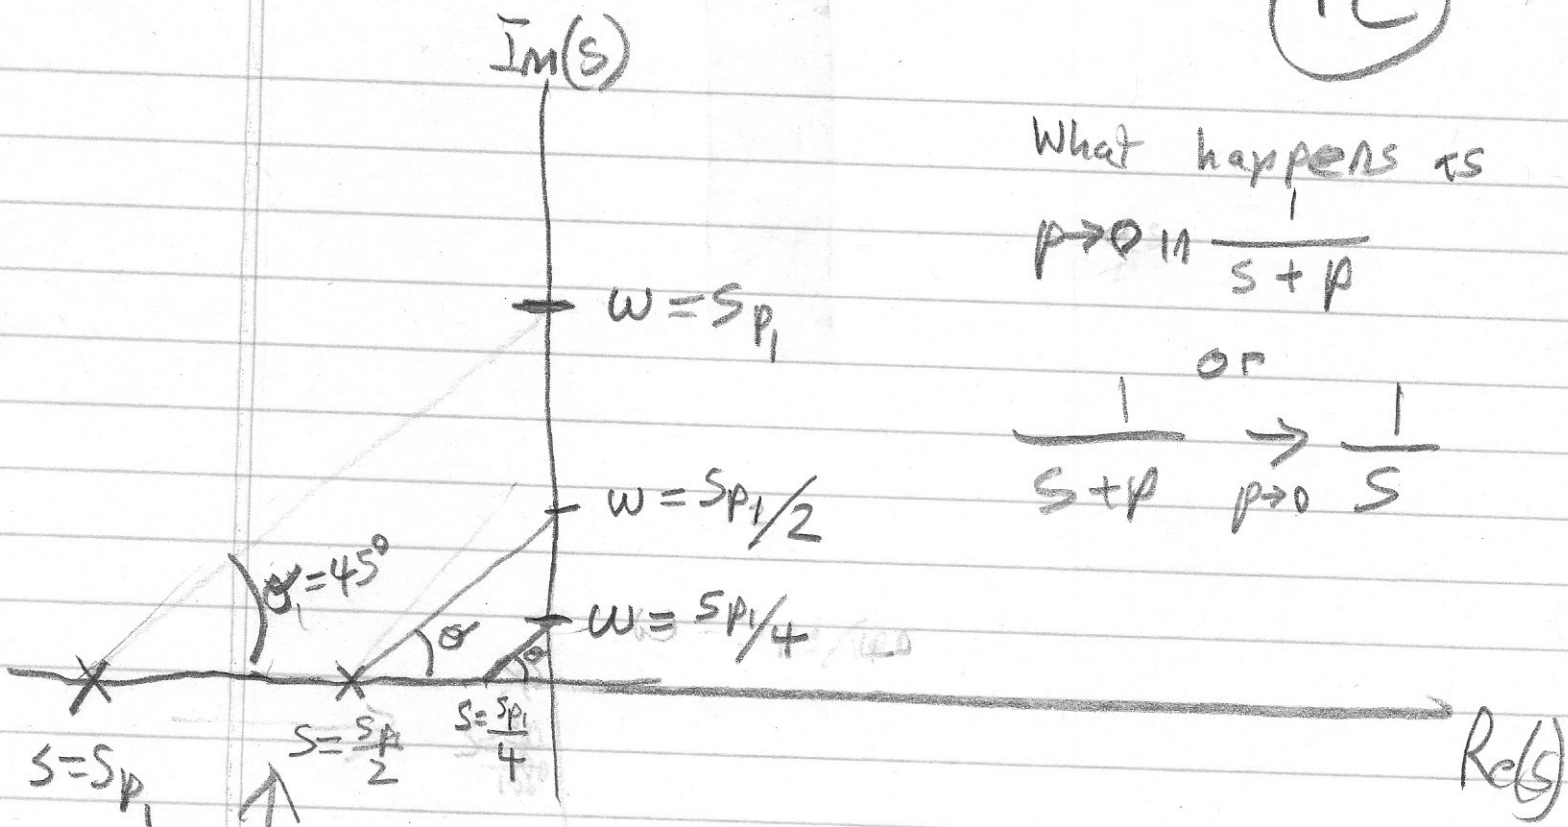 Im(s)
What happens as
p→0 in 1/(s+p)
or
1/(s+p) →p→0 1/s
ω=Sp₁
ω=Sp₁/2
ω=Sp₁/4
θ₁=45°
θ
θ
s=Sp₁
s=Sp₁/2
s=Sp₁/4
Re(s)